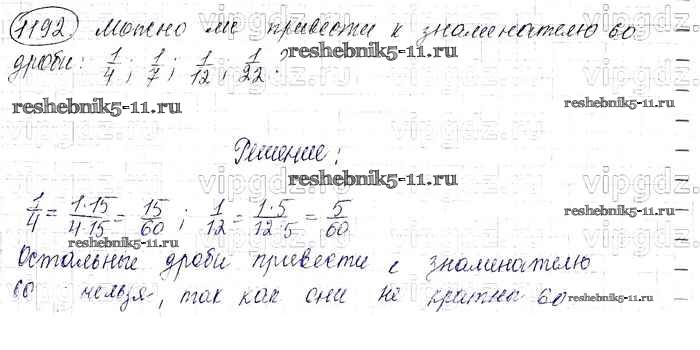 1192 Можно ли привести к знаменателю 60
дроби: 1/4; 1/7; 1/12; 1/22?
reshebnik5-11.ru
reshebnik5-11.ru
Решение:
reshebnik5-11.ru
1/4 = 1·15/4·15 = 15/60; 1/12 = 1·5/12·5 = 5/60
reshebnik5-11.ru
Остальные дроби привести к знаменателю
60 нельзя, так как они не кратны 60
reshebnik5-11.ru